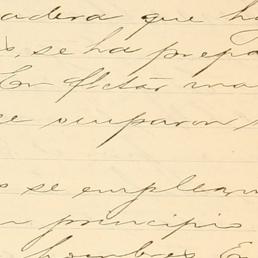 adera que ha
s, se ha prepa
En fletar ma
se ocuparon
s se emplean
n principio
hombres. En